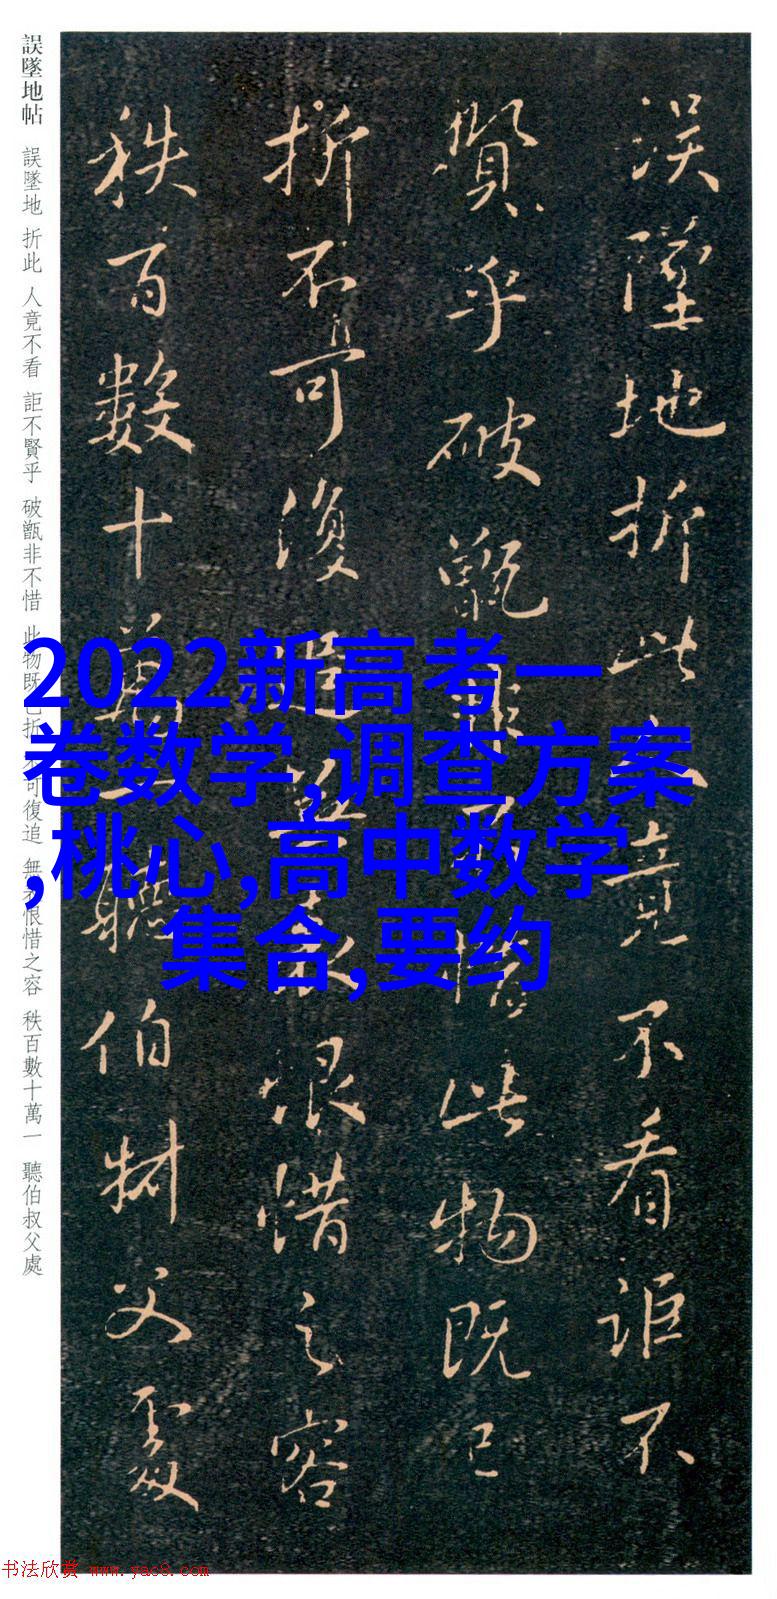 誤墜地折此人竟不看詎不
賢乎破甑非不惜此物既已
折不可復追無恨惜之容
秩百數十萬一聽伯叔父處
誤墜地帖 誤墜地 折此 人竟不看 詎不賢乎 破甑非不惜 此物既已折 不可復追 無恨惜之容 秩百數十萬一 聽伯叔父處
2022新高考一
卷数学,调查方案
,桃心,高中数学
集合,要约
书法欣赏 www.yac8.com